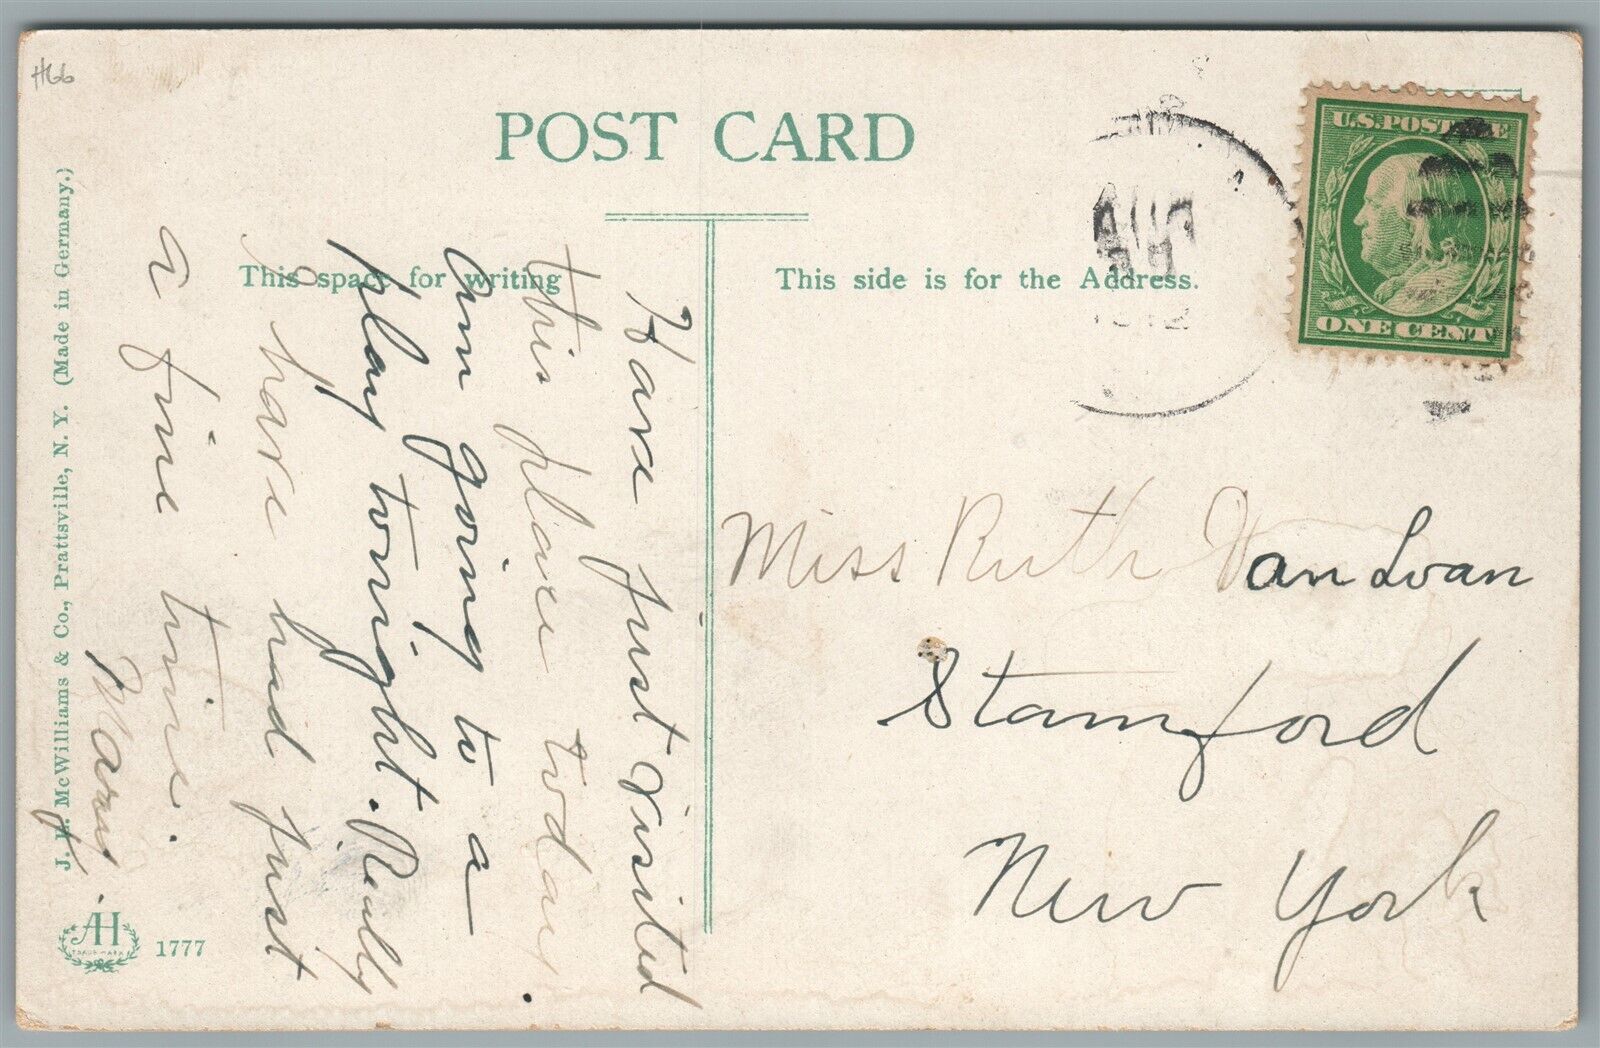 #66
POST CARD
This space for writing
This side is for the Address.
U.S. POSTAGE
ONE CENT
1912
Have just visited
this place today.
Am going to a
play tonight. Really
I have had just
a fine time.
Mary.
Miss Ruth Van Loan
Stamford
New York
J. H. McWilliams & Co., Prattsville, N. Y. (Made in Germany.)
AH
TRADE MARK
1777